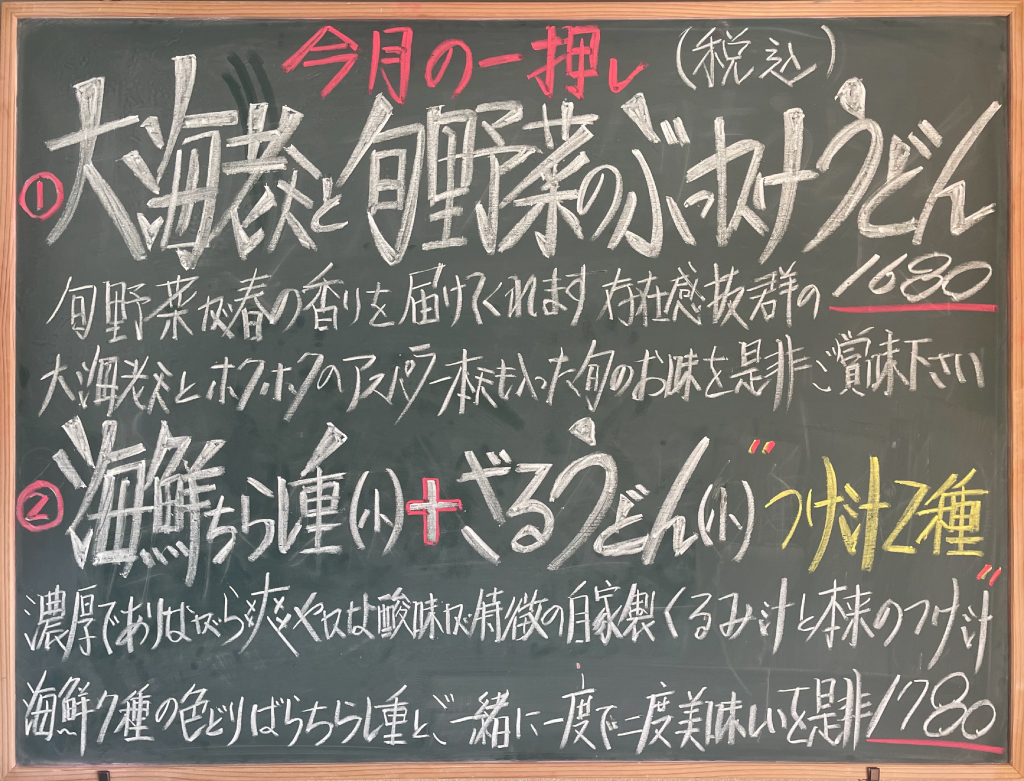 今月の一押し (税込)
① 大海老と旬野菜のぶっかけうどん
旬野菜が春の香りを届けてくれます 存在感抜群の 1680
大海老とホクホクのアスパラ一本も入った旬のお味を是非ご賞味下さい
② 海鮮ちらし重(小)+ざるうどん(小) "つけ汁2種"
濃厚でありながら爽やかな酸味が特徴の自家製くるみ汁と本来のつけ汁
海鮮7種の色どりばらちらし重とご一緒に一度で二度美味しいを是非 1780